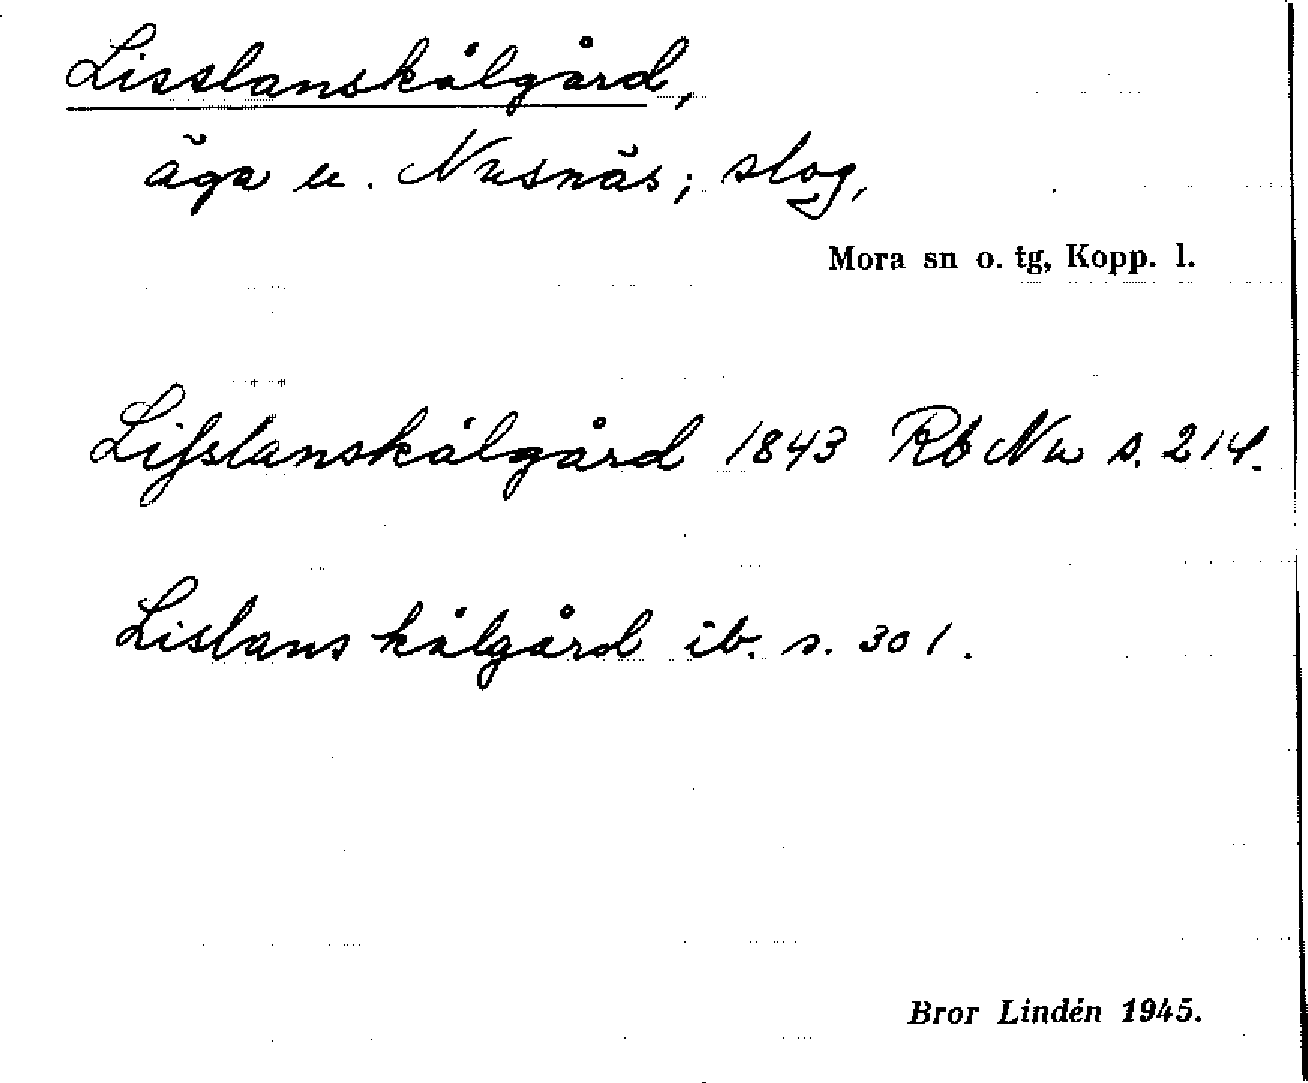 Lisslanskålgård,
äga u. Nusnäs; slog,
Mora sn o. tg, Kopp. l.
Lisslanskålgård 1843 Rb Nu s. 214.
Lislanskålgård ib. s. 301.
Bror Lindén 1945.